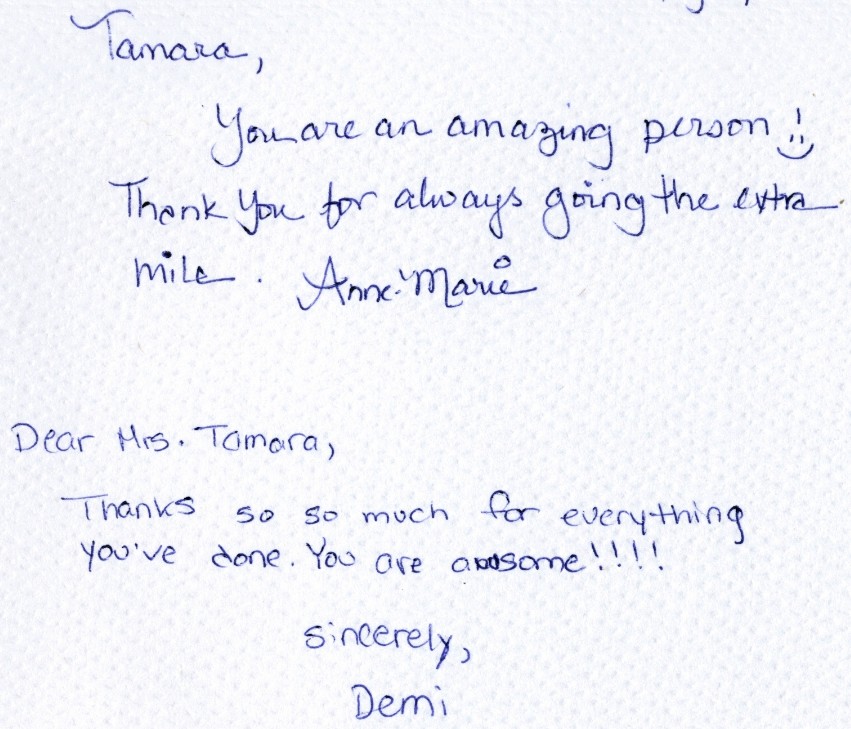 Tamara,
You are an amazing person!
Thank You for always going the extra
mile. Anne-Marie
Dear Mrs. Tamara,
Thanks so so much for everything
you've done. You are awsome!!!!
sincerely,
Demi